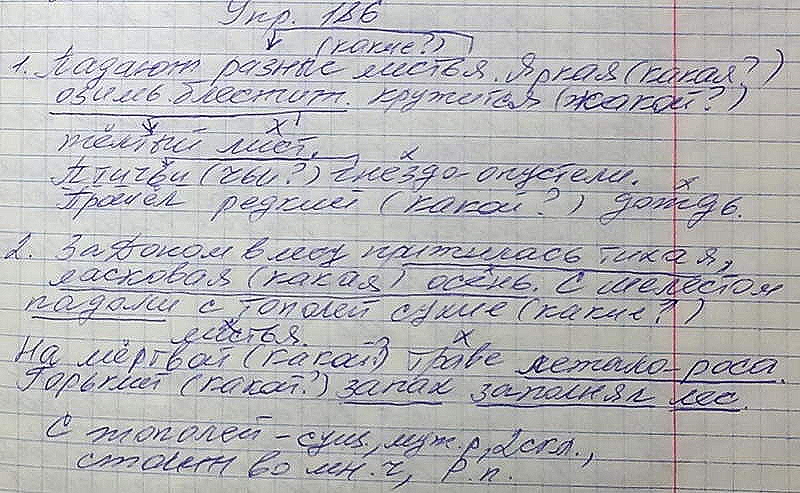 Упр. 186
(какие?)
1. Падают разные листья. Яркая (какая?)
озимь блестит. Кружится (какой?)
жёлтый лист.
Птичьи (чьи?) гнёзда опустели.
Прошёл редкий (какой?) дождь.
2. За Доном в лесу прижилась тихая,
ласковая (какая) осень. С шелестом
падали с тополей сухие (какие?)
листья.
На мёртвой (какой?) траве лежала роса.
Горький (какой?) запах заполнял лес.
С тополей - сущ., муж.р, 2скл.,
стоит во мн.ч, Р.п.